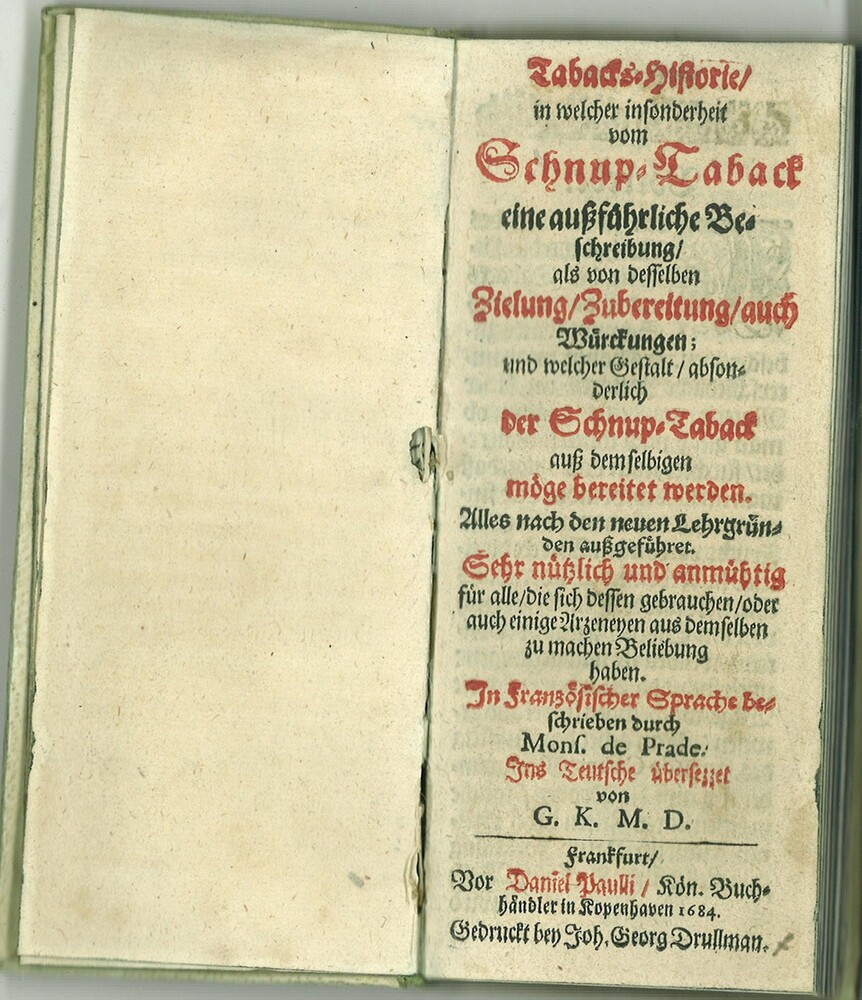 Tabacks-Historie/
in welcher insonderheit
vom
Schnup-Taback
eine außführliche Be-
schreibung/
als von desselben
Zielung/Zubereitung/auch
Würckungen;
und welcher Gestalt/abson-
derlich
der Schnup-Taback
auß demselbigen
möge bereitet werden.
Alles nach den neuen Lehrgrün-
den außgeführet.
Sehr nützlich und anmühtig
für alle/die sich dessen gebrauchen/oder
auch einige Arzeneyen aus demselben
zu machen Beliebung
haben.
In Französischer Sprache be-
schrieben durch
Monſ. de Prade.
Ins Teutsche übersezzet
von
G. K. M. D.
Frankfurt/
Vor Daniel Paulli/Kön. Buch-
händler in Kopenhaven 1684.
Gedruckt bey Joh. Georg Drullman.